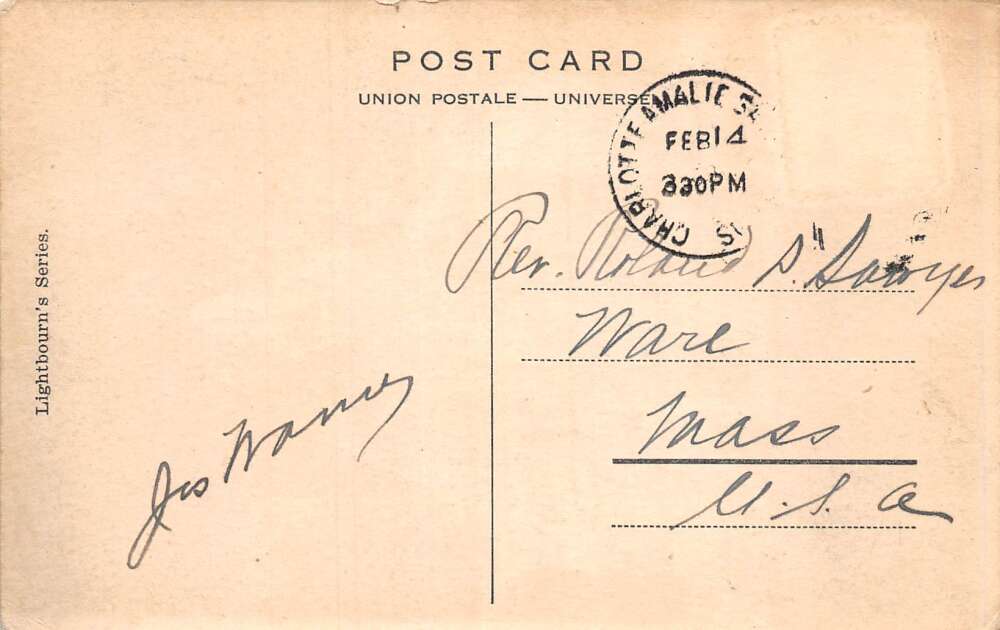 POST CARD
UNION POSTALE — UNIVERSE
CHARLOTTE AMALIE
FEB 14
330PM
Rev. Roland D. Sawyer
Ware
Mass
U.S.A
Lightbourn's Series.
Jes